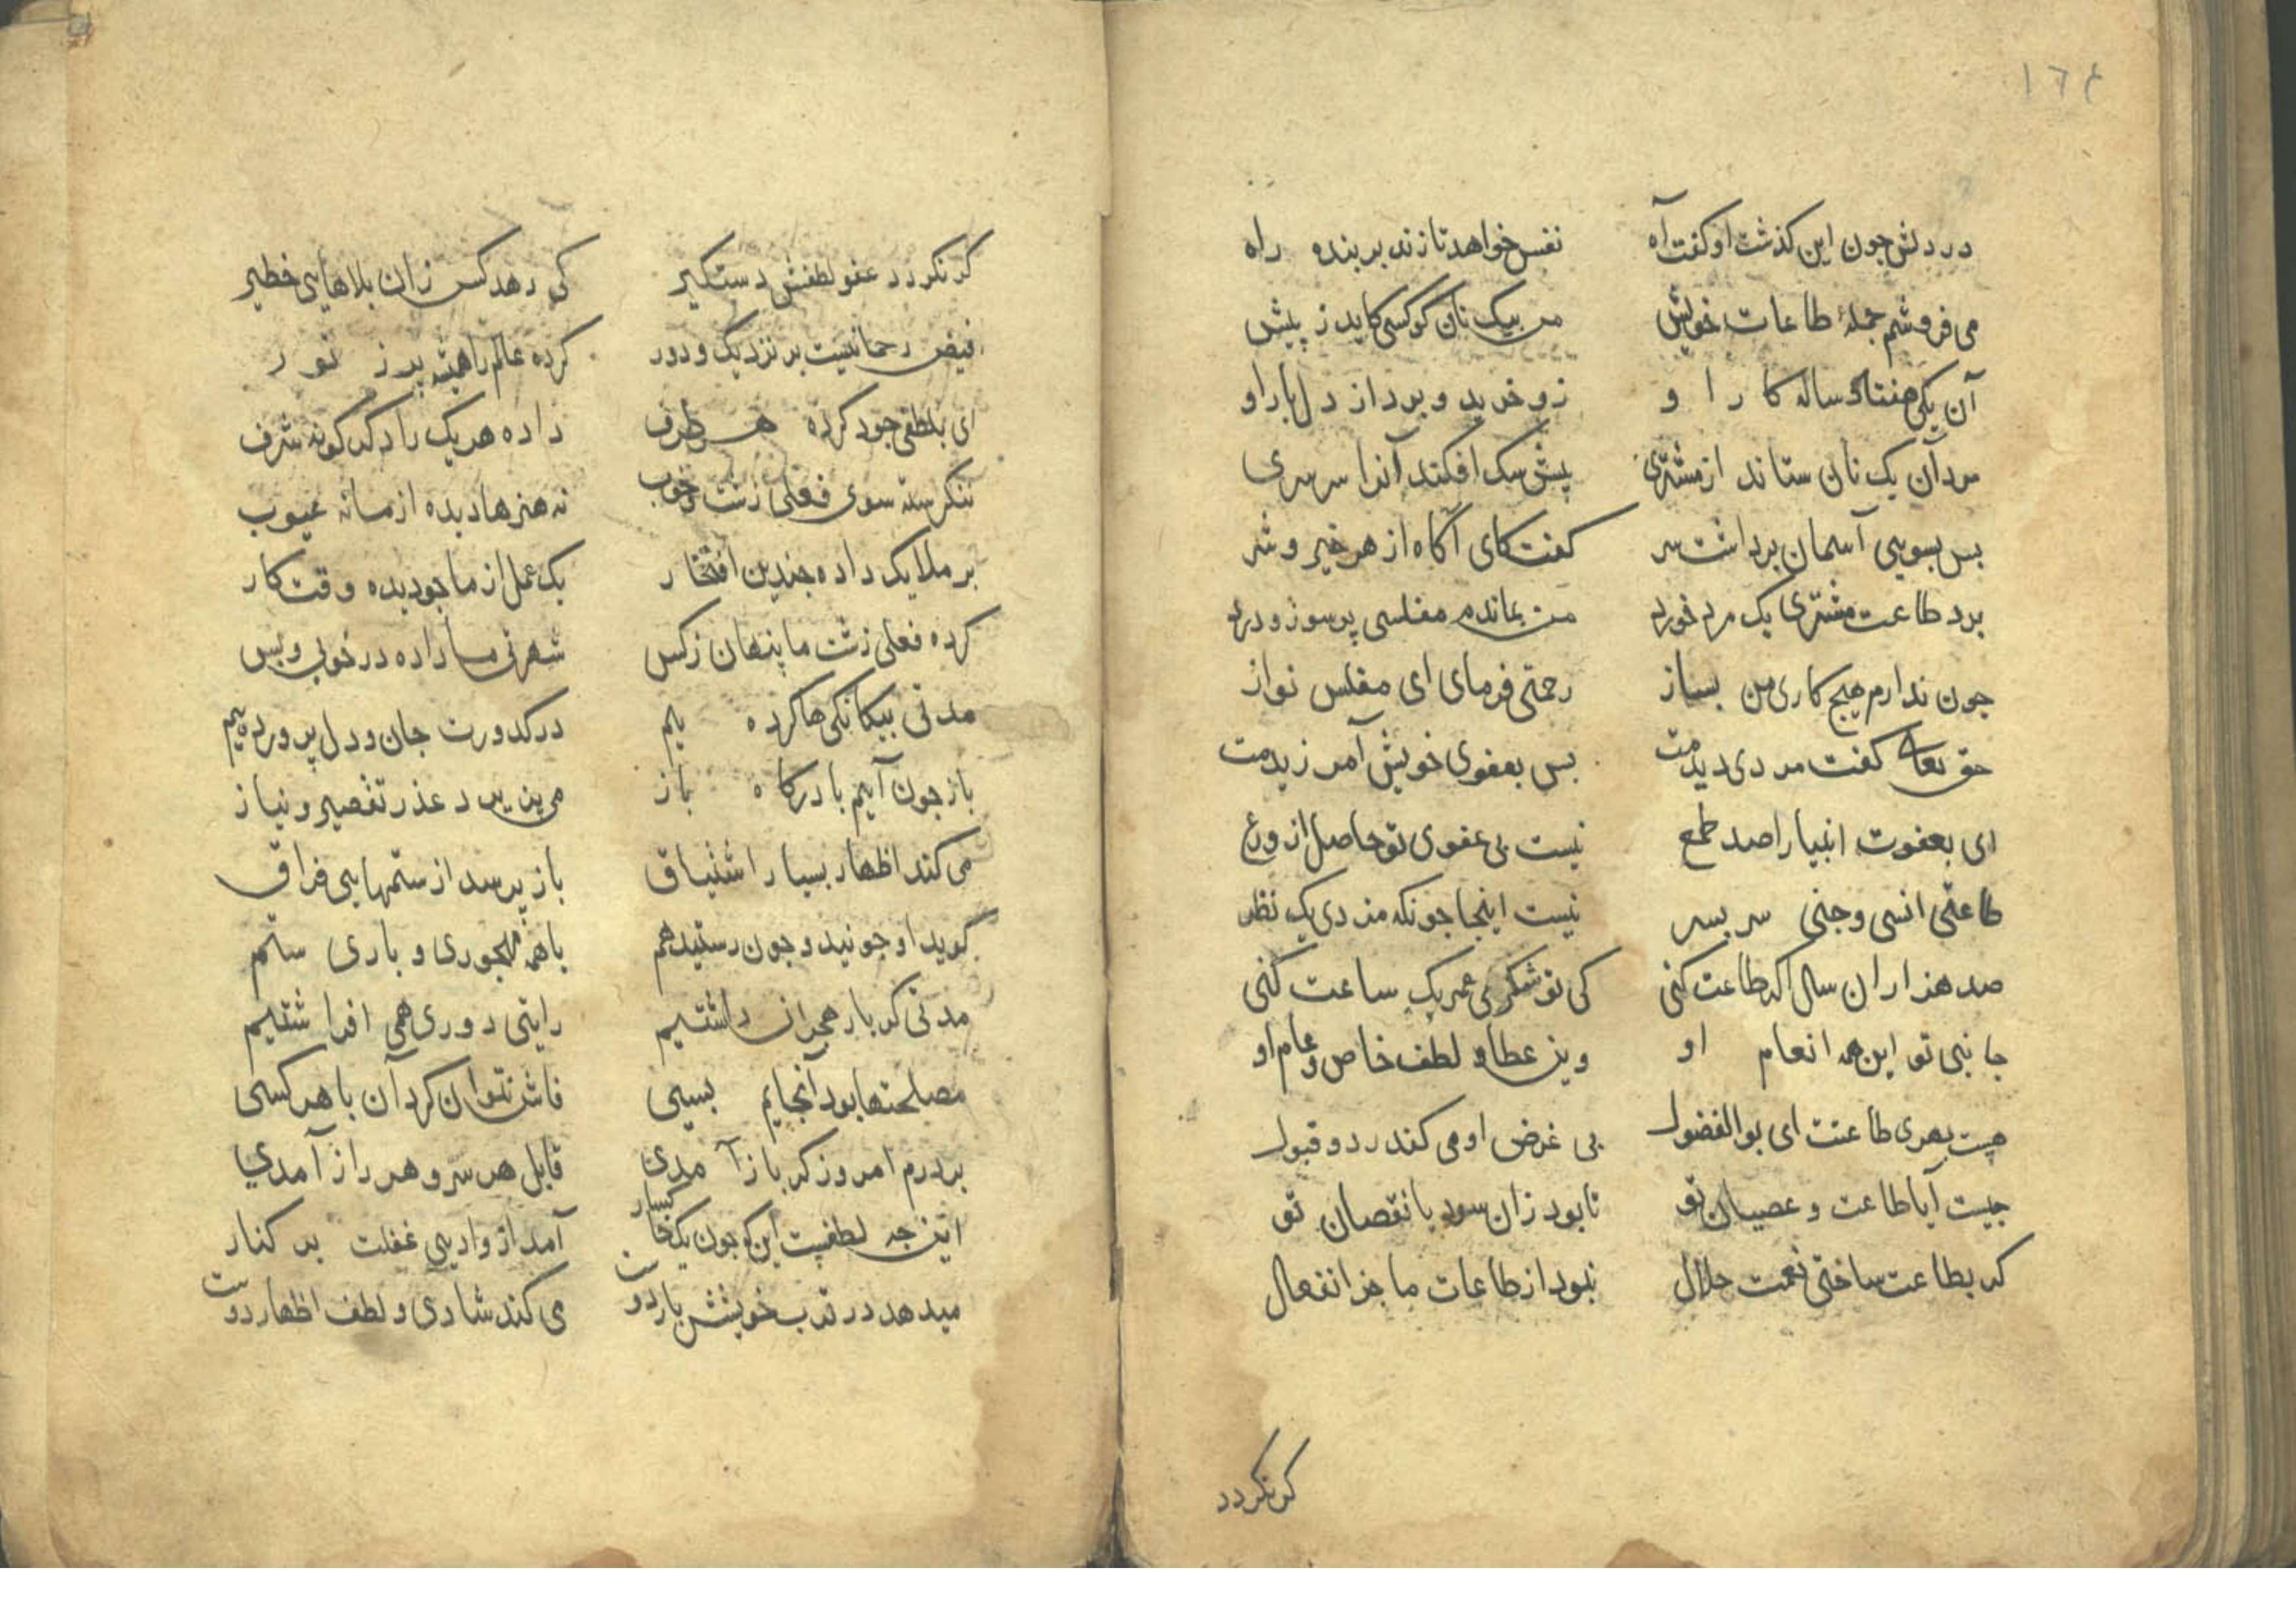 ١٦٤
در دلش جون این کذشت او کفت آه نفس خواهد تا زند بر بنده راه
می فروشم جملهٔ طاعات خویش من بیک نان کو کسی کاید ز پیش
آن یکی هفتاد ساله کار او زو خرید و برد از دل بار او
مرد آن یک نان ستاند از مشتری پیش سک افکند آنرا سرسری
بس بسویی آسمان برداشت سر کفت کای آکاه از هر خیر و شر
برد طاعت مشتری یک مرد خورد من بماندم مفلسی پر سوز و درد
جون ندارم هیج کاری من بساز رحمتی فرمای ای مفلس نواز
حق تعالی کفت مردی دیدمت بس بعفوی خویش آمرزیدمت
ای بعفوت انبیا را صد طمع نیست بی عفوی تو حاصل از ورع
طاعتی انسی و جنی سر بسر نیست اینجا جونکه مزدی یک نظر
صد هزاران سال اکر طاعت کنی کی تو شکری عمر یک ساعت کنی
جانبی تو این همه انعام او وین عطا و لطف خاص و عام او
هیست بهری طاعتت ای بوالفضول بی غرض او می کند رد و قبول
جیست آیا طاعت و عصیان تو تا بود زان سود یا نقصان تو
کر بطاعت ساختی نعمت حلال نبود از طاعات ما جز انفعال
کر نکردد
کر نکردد عفو لطفش دستکیر کی رهد کس زان بلاهایی خطیر
فیض رحمانیست بر نزدیک و دور کرده عالم را همه پر ز نور
ای بلطفی جود کرده هر طرف داده هر یک را دکر کونه شرف
ننکرسته سوی فعلی زشت و خوب نه هنرها دیده از ما نه عیوب
بر ملایک داده جندین افتخار یک عمل از ما جو دیده وقت کار
کرده فعلی زشت ما پنهان ز کس شهرتی ما داده در خوبی و بس
مدتی بیکانکی ها کرده یم در کدورت جان و دل پرورده یم
باز جون آییم با درکاه باز می پذیرد عذر تقصیر و نیاز
می کند اظهار بسیار اشتیاق باز پرسد از ستمهایی فراق
کوید او جونید و جون رستید هم با همه مهجوری و باری ستم
مدتی کر بار هجران داشتیم رایتی دوری همی افراشتیم
مصلحتها بود آنجایم بسیی فاش نتوان کرد آن با هر کسی
بر درم امروز کر باز آمدی قابل هر سر و هر راز آمدی
این جه لطفیست این که جون یک خاکسار آمد از وادیی غفلت بر کنار
میدهد در قرب خویشش بار دوست می کند شادی و لطف اظهار دوست